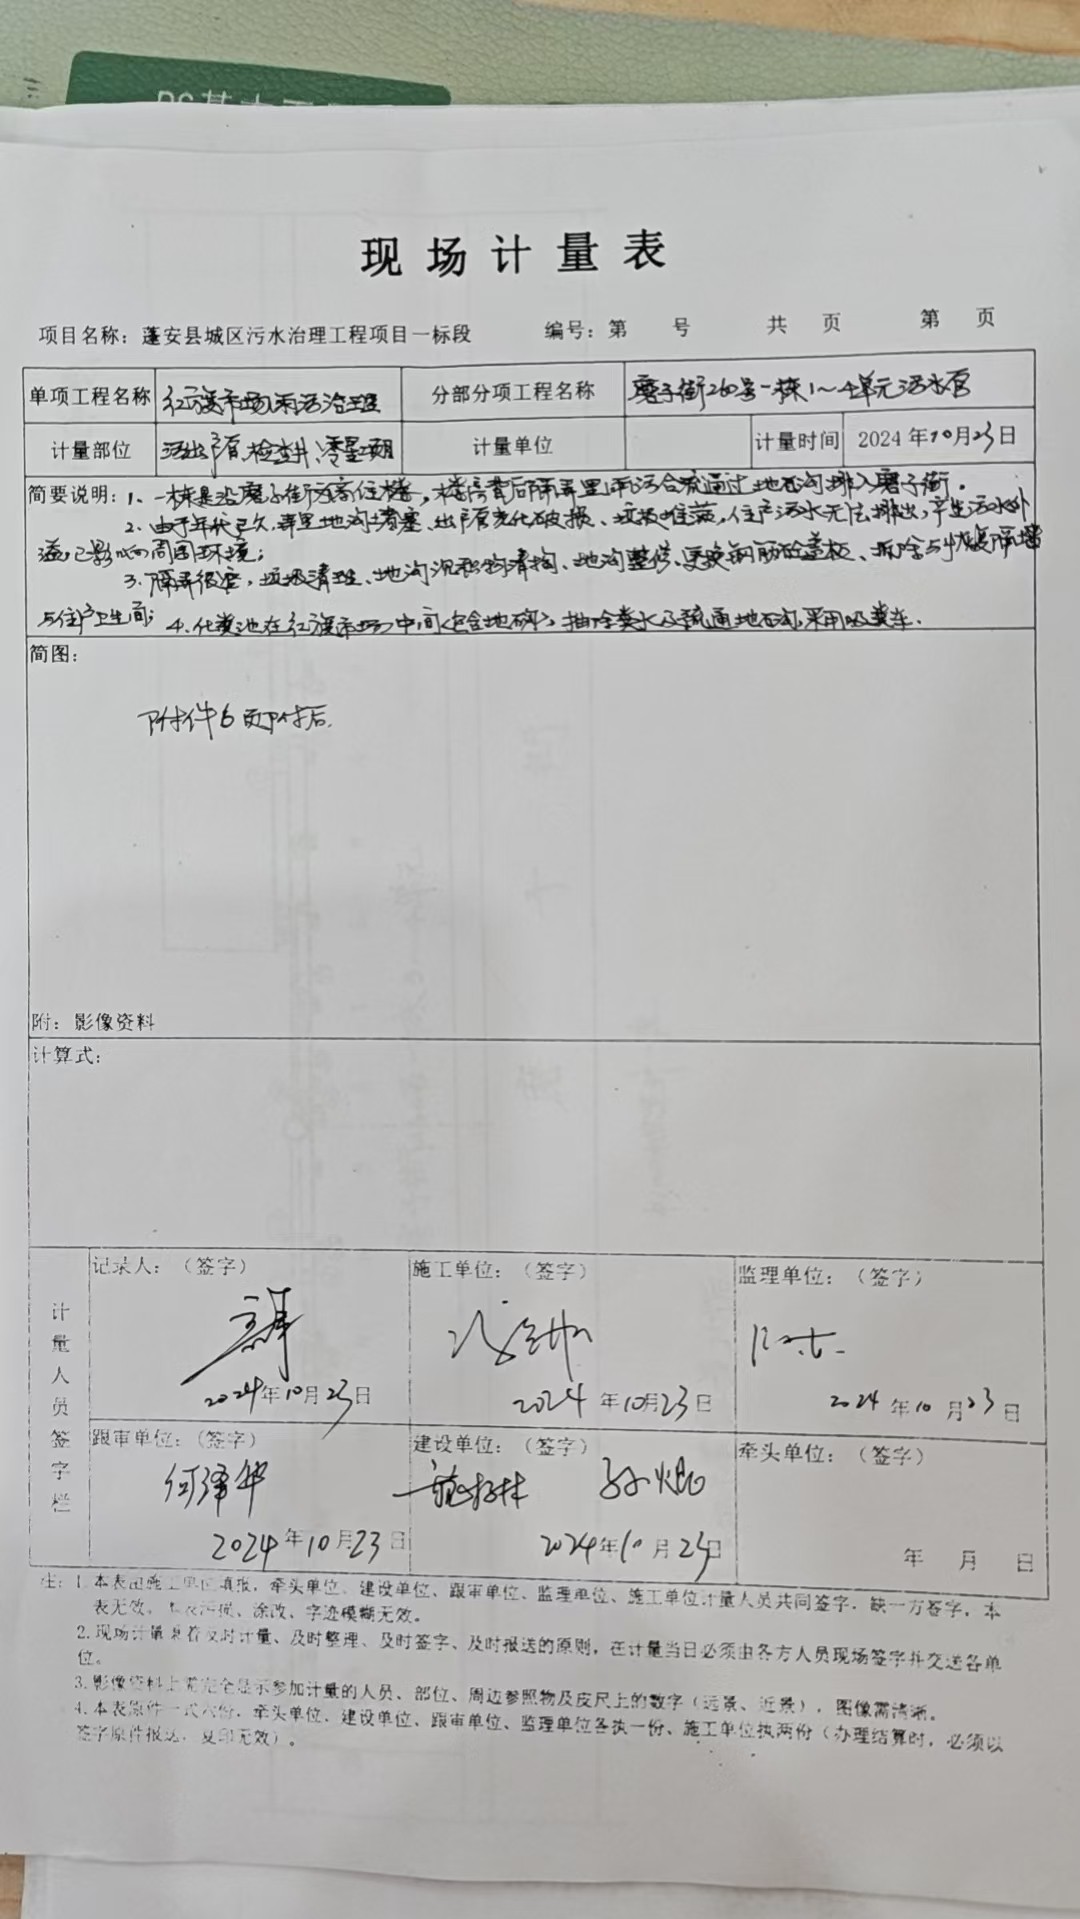 现场计量表
项目名称：蓬安县城区污水治理工程项目一标段 编号：第 号 共 页 第 页
单项工程名称 红旗市场雨污治理 分部分项工程名称 磨子街260号一栋1～4单元污水管
计量部位 污出户管、检查井、零星项 计量单位 计量时间 2024年10月23日
简要说明：1、一栋是沿磨子街为高位楼，楼房背后隔弄里雨污合流通过地石沟排入磨子街。
2、由于年代已久，弄里地沟堵塞、出户管老化破损、垃圾堆荿，住户污水无法排出，产生污水外
溢，已影响周围环境；
3、隔弄很窄，垃圾清理、地沟沉积物清掏、地沟整修、更换钢筋砼盖板、拆除与恢复隔墙
与住户卫生间；4、化粪池在红旗市场中间（包含地砖），抽除粪水及疏通地石沟，采用吸粪车。
简图：
附件6页附后
附：影像资料
计算式：
计量人员签字栏
记录人：（签字） 施工单位：（签字） 监理单位：（签字）
2024年10月23日 2024年10月23日 2024年10月23日
跟审单位：（签字） 建设单位：（签字） 牵头单位：（签字）
何泽华
2024年10月23日 2024年10月23日 年 月 日
注：1.本表由施工单位填报，牵头单位、建设单位、跟审单位、监理单位、施工单位计量人员共同签字，缺一方签字，本
表无效，本表污损、涂改、字迹模糊无效。
2.现场计量本着及时计量、及时整理、及时签字、及时报送的原则，在计量当日必须由各方人员现场签字并交送各单
位。
3.影像资料上需完全显示参加计量的人员、部位、周边参照物及皮尺上的数字（远景、近景），图像需清晰。
4.本表原件一式六份，牵头单位、建设单位、跟审单位、监理单位各执一份、施工单位执两份（办理结算时，必须以
签字原件报送，复印无效）。